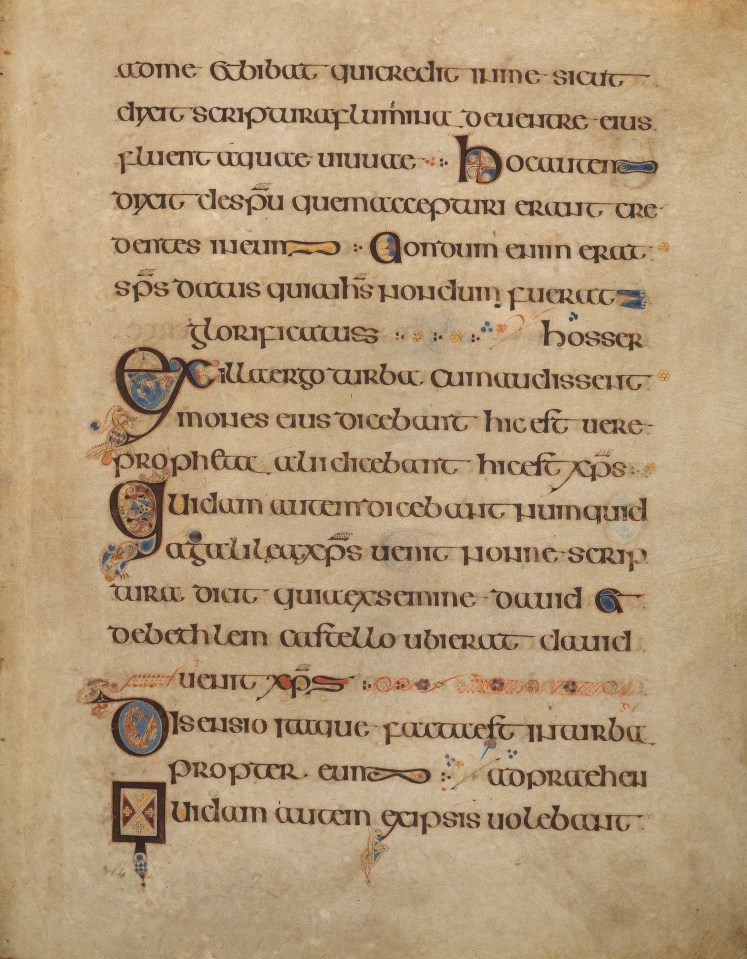 adme et bibat quicredit inme sicut
dixit scriptura flumina deventre eius
fluent aquae vivae hocautem
dixit despu quem accepturi erant cre
dentes ineum Nondum enim erat
sps datus quia ihs nondum fuerat
glorificatuss
hos ser
Exilla ergo turba cumaudissent
mones eius dicebant hic est vere
propheta alii dicebant hic est xps
Quidam autem dicebant numquid
agalilea xps venit nonne scrip
tura dicit quia ex semine david et
debethlem castello ubi erat david
venit xps
Disensio itaque facta est in turba
propter eum
adpraehen
Quidam autem ex ipsis volebant